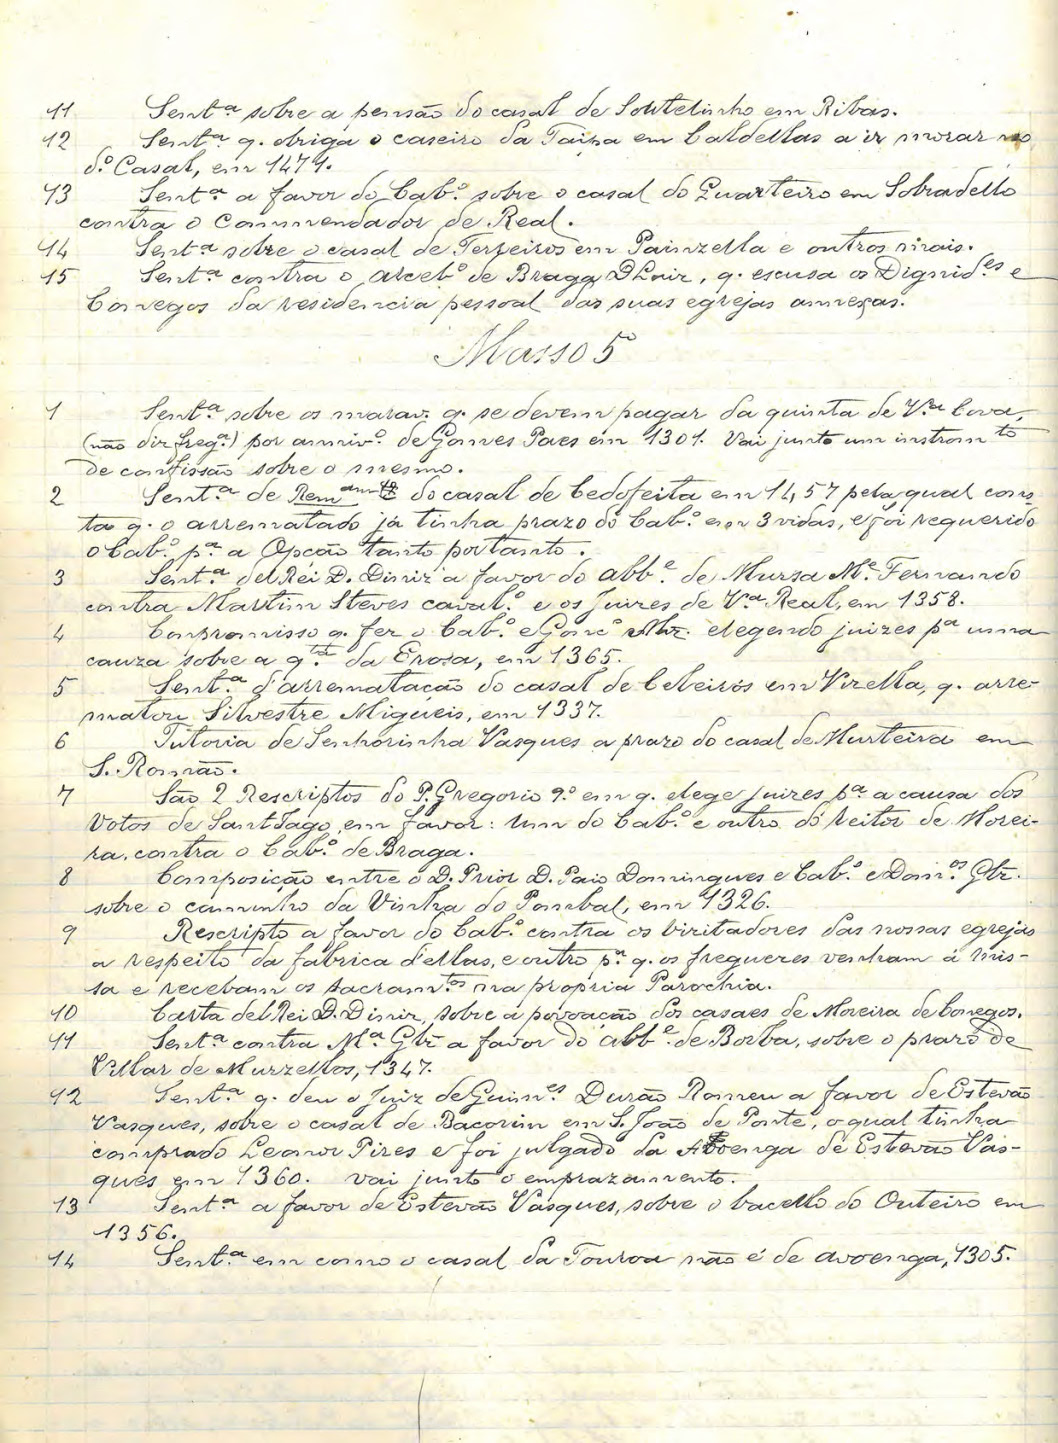 11 Sent.ª sobre a pensão do casal de Soutelinho em Ribas.
12 Sent.ª q. obriga o caseiro da Taipa em Caldellas a ir morar no
d.º Casal, em 1479.
13 Sent.ª a favor do Cab.º sobre o casal do Quarteiro em Sobradello
contra o Commendador de Real.
14 Sent.ª sobre o casal de Terfeiros em Painzella e outros mais.
15 Sent.ª contra o Arceb.º de Braga D Luiz, q. escusa os Dignid.es e
Conegos da residencia pessoal das suas egrejas annexas.
Masso 5
1 Sent.ª sobre os marav. q. se devem pagar da quinta de V.ª Cova,
(não diz freg.ª) por anniv.º de Gomes Paes em 1301. Vai junto um instrom.to
de confissão sobre o mesmo.
2 Sent.ª de Rem do casal de Cedofeita em 1457 pela qual cons-
ta q. o arrematado já tinha prazo do Cab.º em 3 vidas, e foi requerido
o Cab.º p.ª a Opção tanto por tanto.
3 Sent.ª del Rei D. Diniz a favor do abb.e de Mursa M.e Fernando
contra Martim Steves caval.º e os Juizes de V.ª Real, em 1358.
4 Compromisso q. fez o Cab.º e Gonc.º elegendo juizes p.ª uma
cauza sobre a q.tã da Erosa, em 1365.
5 Sent.ª d'arrematação do casal de Celeirós em Vizella, q. arre-
matou Silvestre Migueis, em 1337.
6 Tutoria de Senhorinha Vasques a prazo do casal de Murteira em
S. Romão.
7 São 2 Rescriptos do P. Gregorio 9.º em q. elege juizes p.ª a causa dos
Votos de Sant'Iago, em favor: Um do Cab.º e outro do Reitor de Morei-
ra, contra o Cab.º de Braga.
8 Composição entre o D. Prior D. Paio Domingues e Cab.º e Dom.os Glz.
sobre o caminho da Vinha do Pombal, em 1326.
9 Rescripto a favor do Cab.º contra os vizitadores das nossas egrejas
a respeito da fabrica d'ellas, e outro p.ª q. os freguezes venham á Mis-
sa e recebam os sacram.tos na propria Parochia.
10 Carta del Rei D. Diniz, sobre a povoação dos casaes de Moreira de Conegos.
11 Sent.ª contra M.ª Glz a favor do abb.e de Borba, sobre o prazo de
Villar de Murzellos, 1347.
12 Sent.ª q. deu o Juiz de Guim.es Durão Romeu a favor de Estevão
Vasques, sobre o casal de Bacorim em S. João de Ponte, o qual tinha
comprado Leonor Pires e foi julgado da Avoenga de Estevão Vas-
ques em 1360. Vai junto o emprazamento.
13 Sent.ª a favor de Estevão Vasques, sobre o bacello do Outeiro em
1356.
14 Sent.ª em como o casal da Touroa não é de avoenga, 1305.